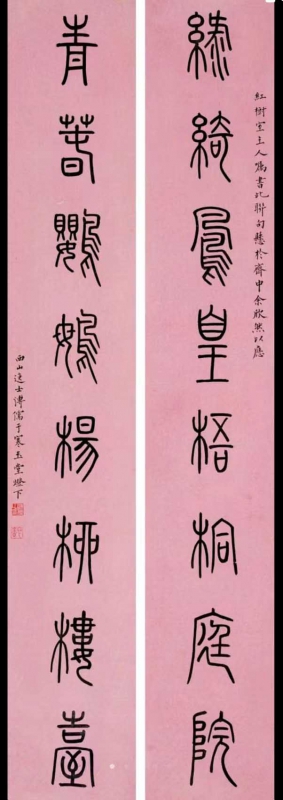 紅樹室主人屬書此聯句懸於齋中余欣然以應
綠綺鳳皇梧桐庭院
青春鸚鵡楊柳樓臺
西山逸士溥儒于寒玉堂燈下